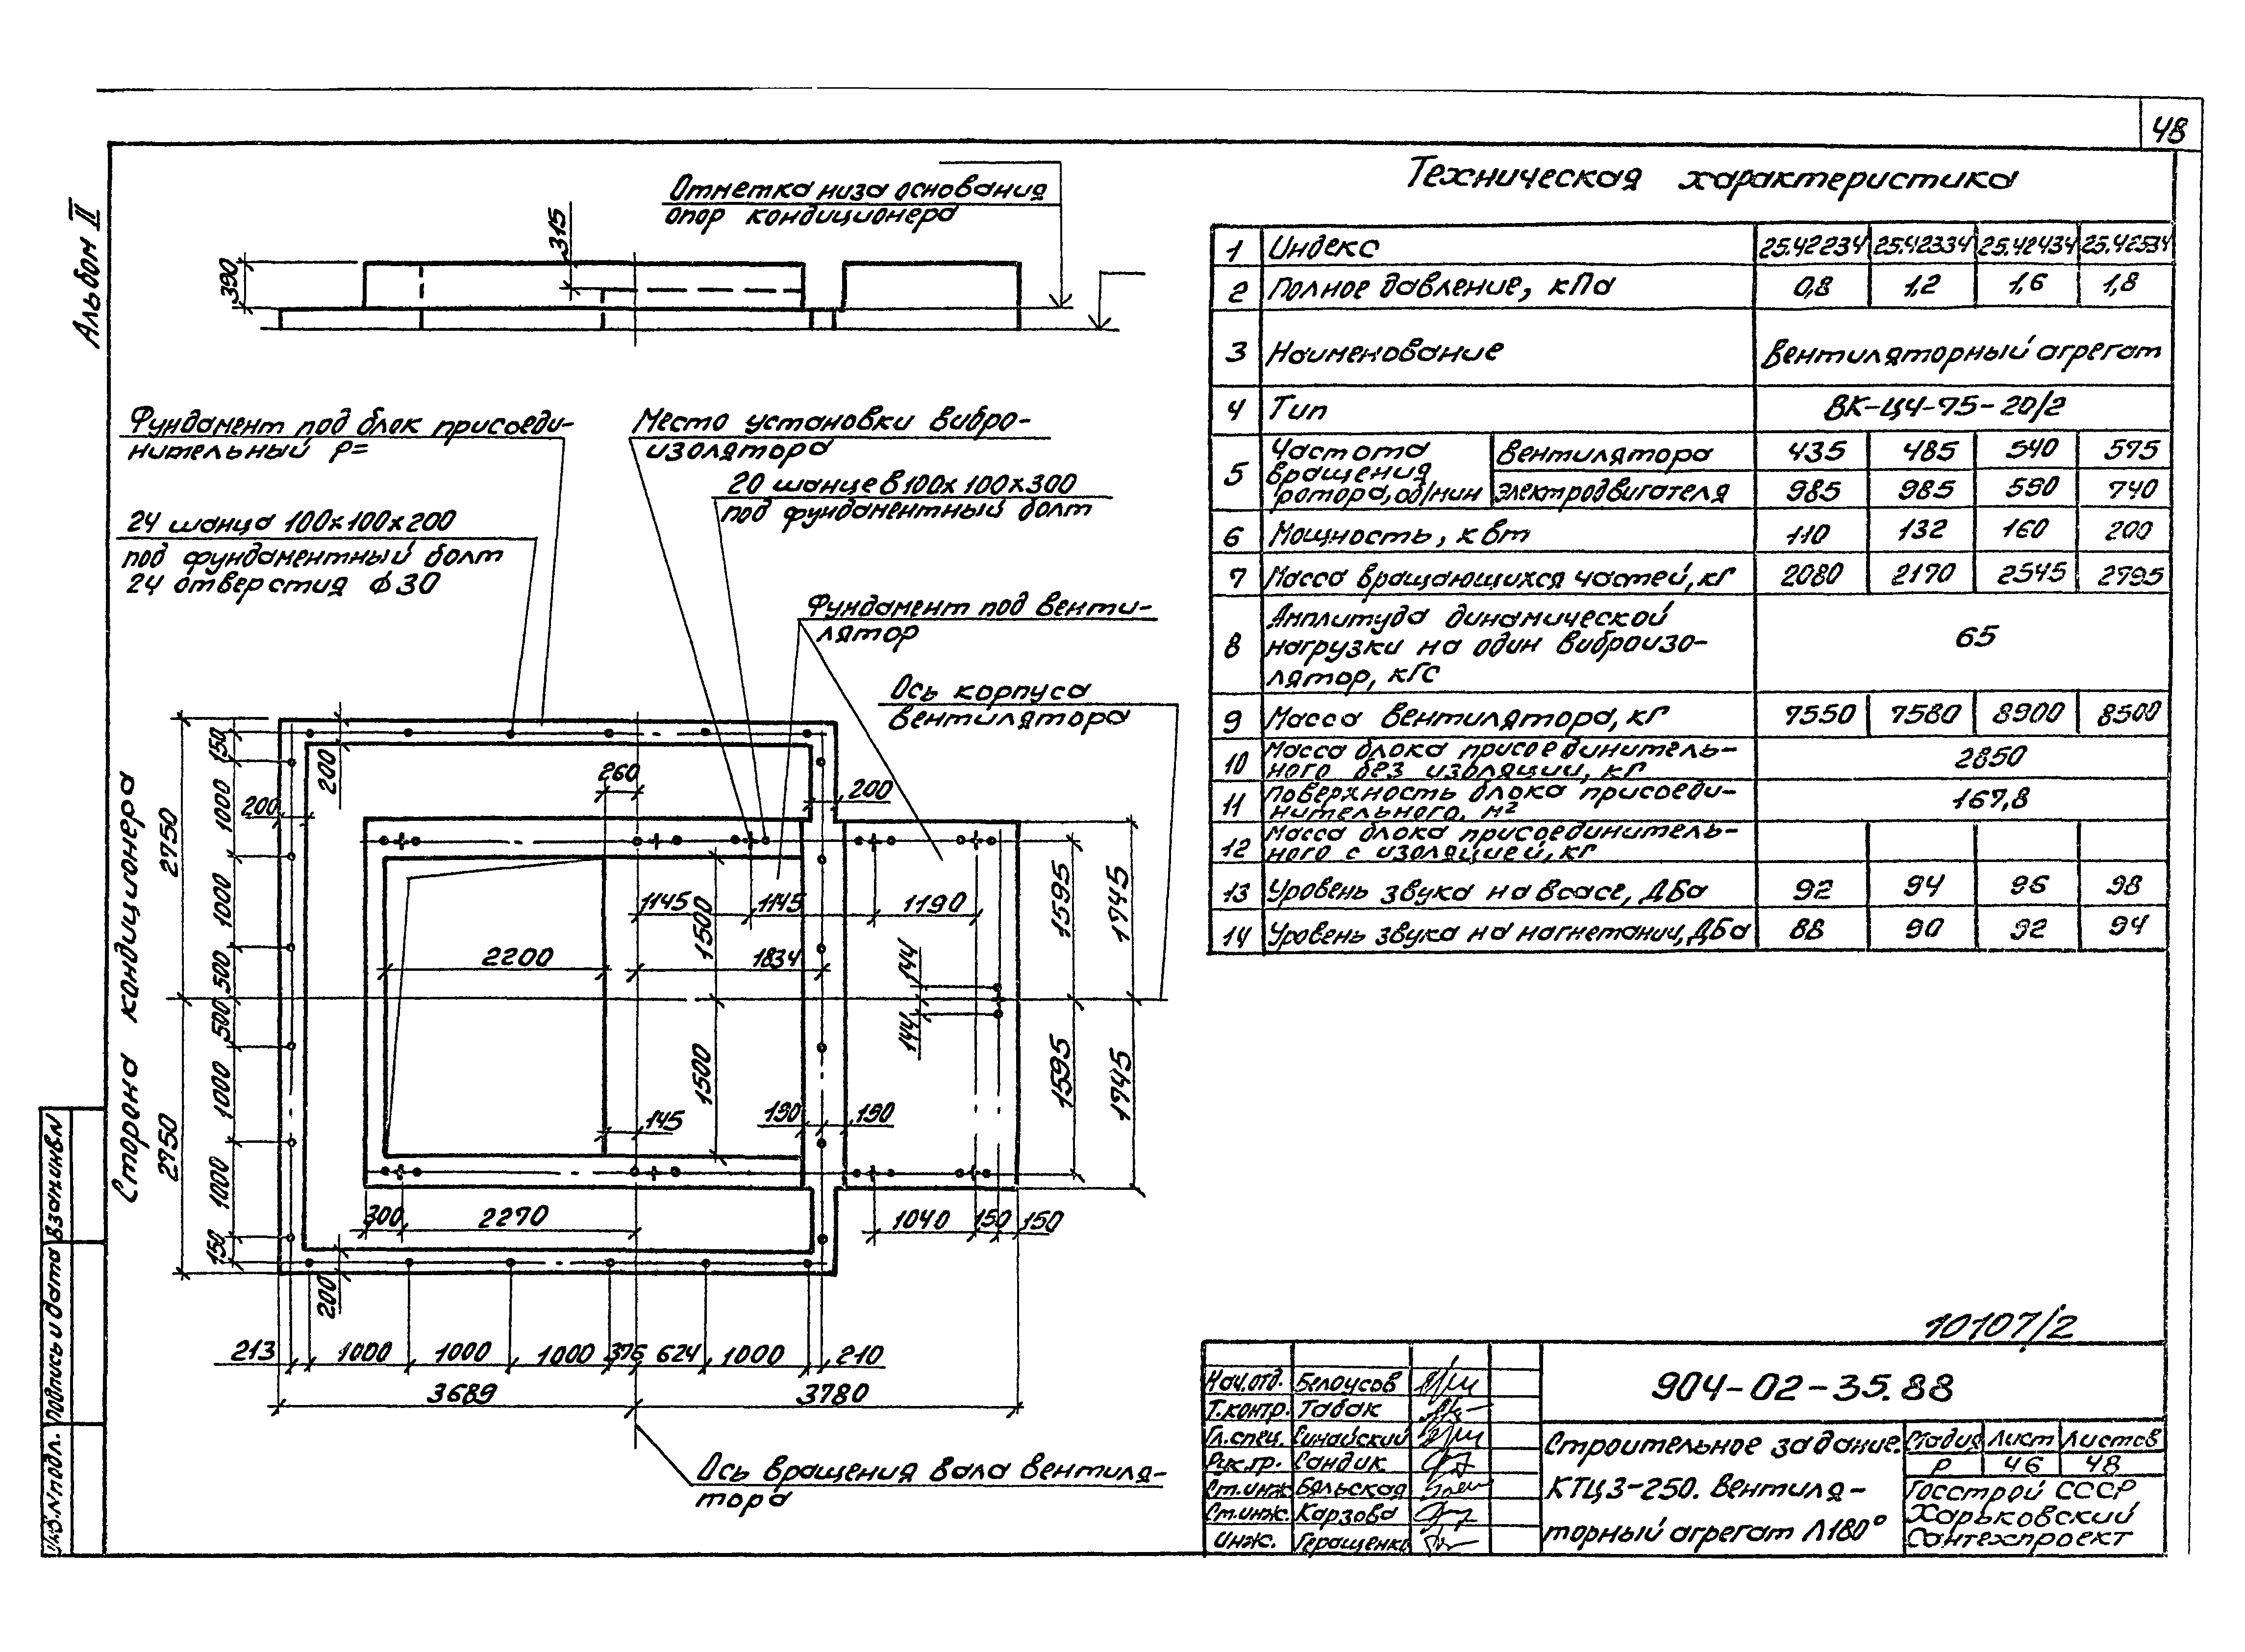 48
Альбом II
Отметка низа основания
опор кондиционера
315
390
Фундамент под блок присоеди-
нительный P=
Место установки вибро-
изолятора
20 шанцев 100х100х300
под фундаментный болт
24 шанца 100х100х200
под фундаментный болт
24 отверстия ф30
Фундамент под венти-
лятор
Ось корпуса
вентилятора
Сторона кондиционера
2750
2750
150
1000
1000
500
500
1000
1000
150
200
200
260
200
1145
1145
1190
1500
1500
2200
1834
144
144
1595
1595
1745
1745
145
190
190
300
2270
1040
150
150
200
213
1000
1000
1000
376
624
1000
210
3689
3780
Ось вращения вала вентиля-
тора
Техническая характеристика
1 Индекс 25.42234 25.42334 25.42434 25.42534
2 Полное давление, кПа 0,8 1,2 1,6 1,8
3 Наименование Вентиляторный агрегат
4 Тип ВК-Ц4-75-20/2
5 Частота вращения ротора, об/мин
вентилятора 435 485 540 575
электродвигателя 985 985 590 740
6 Мощность, квт 110 132 160 200
7 Масса вращающихся частей, кг 2080 2170 2545 2795
8 Амплитуда динамической
нагрузки на один виброизо-
лятор, кГс 65
9 Масса вентилятора, кг 7550 7580 8900 8500
10 Масса блока присоединитель-
ного без изоляции, кг 2850
11 Поверхность блока присоеди-
нительного, м² 167,8
12 Масса блока присоединитель-
ного с изоляцией, кг
13 Уровень звука на всасе, ДБа 92 94 96 98
14 Уровень звука на нагнетании, ДБа 88 90 92 94
10107/2
904-02-35.88
Нач.отд. Белоусов
Т.контр. Табак
Гл.спец. Синайский
Рук.гр. Сандик
Ст.инж. Бяльская
Ст.инж. Карзова
Инж. Геращенко
Строительное задание.
КТЦ3-250. Вентиля-
торный агрегат Л180°
Стадия Лист Листов
Р 46 48
Госстрой СССР
Харьковский
Сантехпроект
Взам.инв.N
Подпись и дата
Инв.N подл.